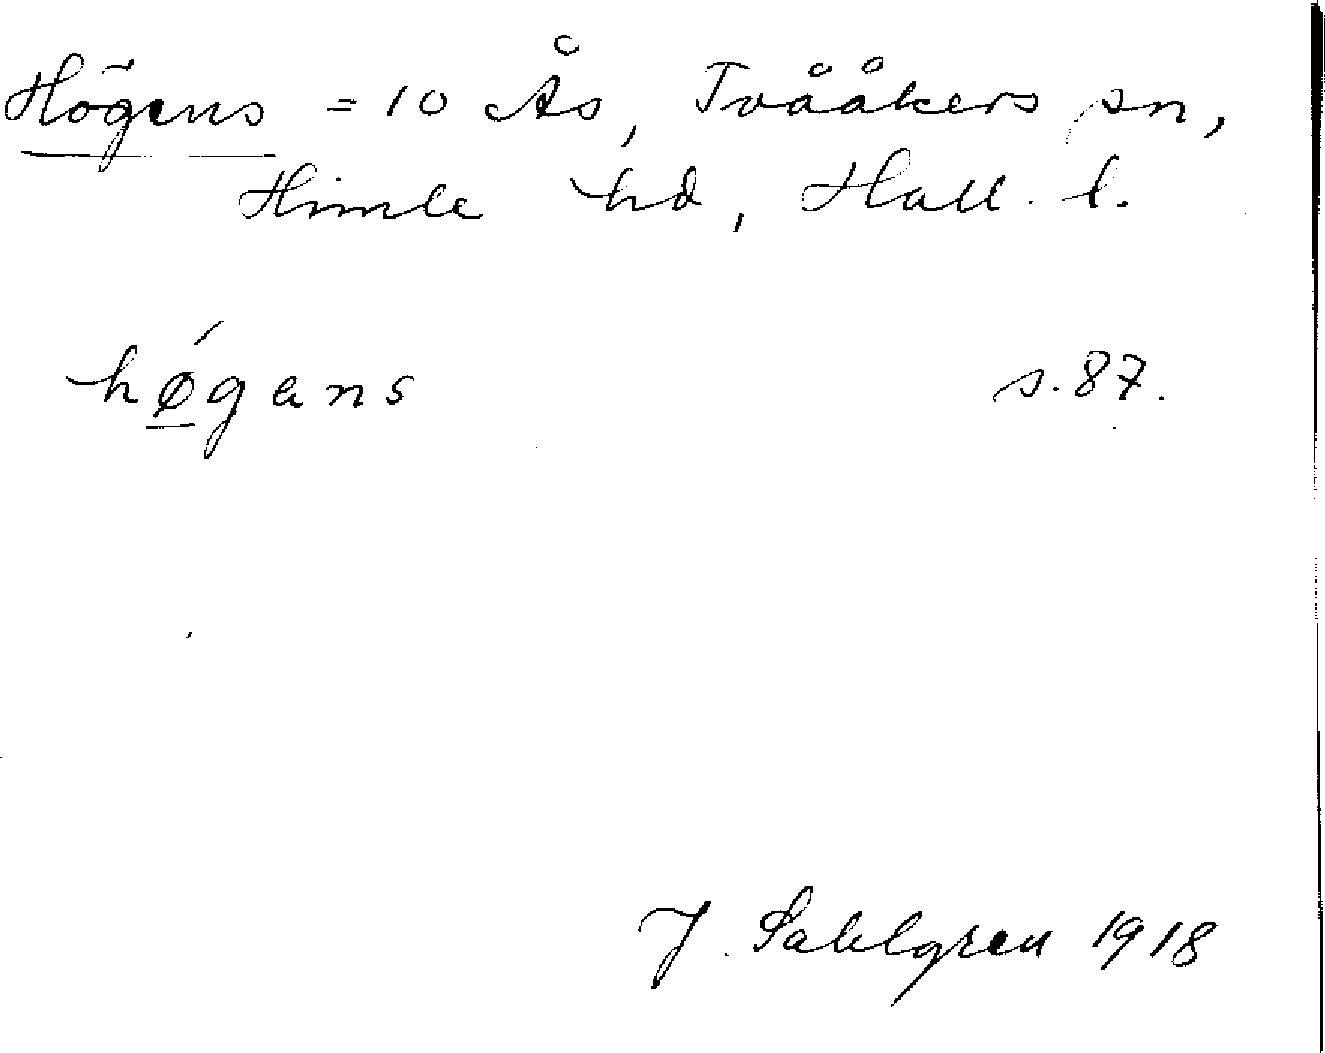 Högens = 10 Ås, Tvååkers sn,
Himle hd, Hall. l.
hǿ̲gans s. 87.
J. Sahlgren 1918